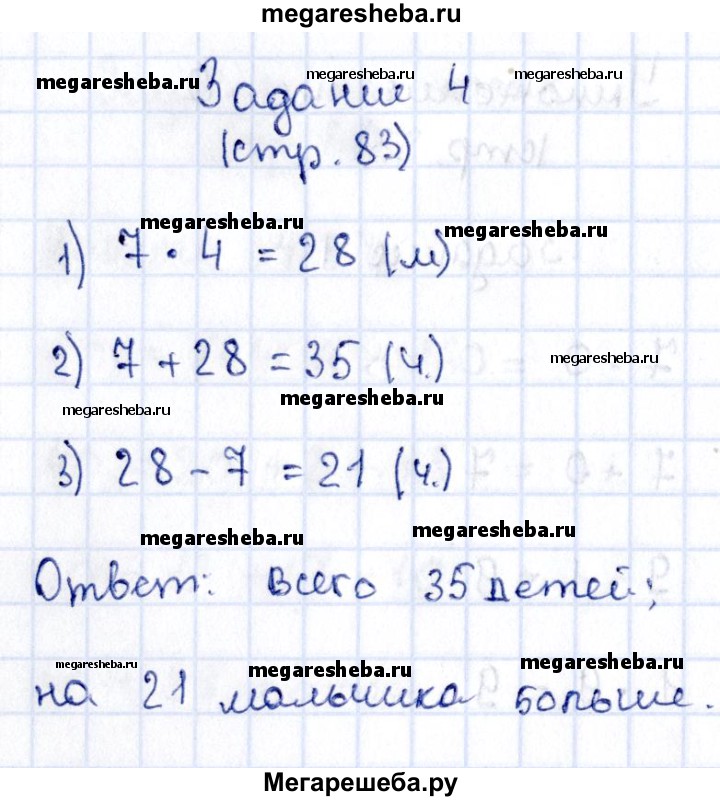 megaresheba.ru
megaresheba.ru megaresheba.ru megaresheba.ru
Задание 4
(стр. 83)
megaresheba.ru megaresheba.ru
1) 7 · 4 = 28 (м)
2) 7 + 28 = 35 (ч.)
megaresheba.ru
megaresheba.ru megaresheba.ru
3) 28 - 7 = 21 (ч.)
megaresheba.ru megaresheba.ru
Ответ: всего 35 детей;
megaresheba.ru megaresheba.ru megaresheba.ru
на 21 мальчика больше.
Мегарешеба.ру